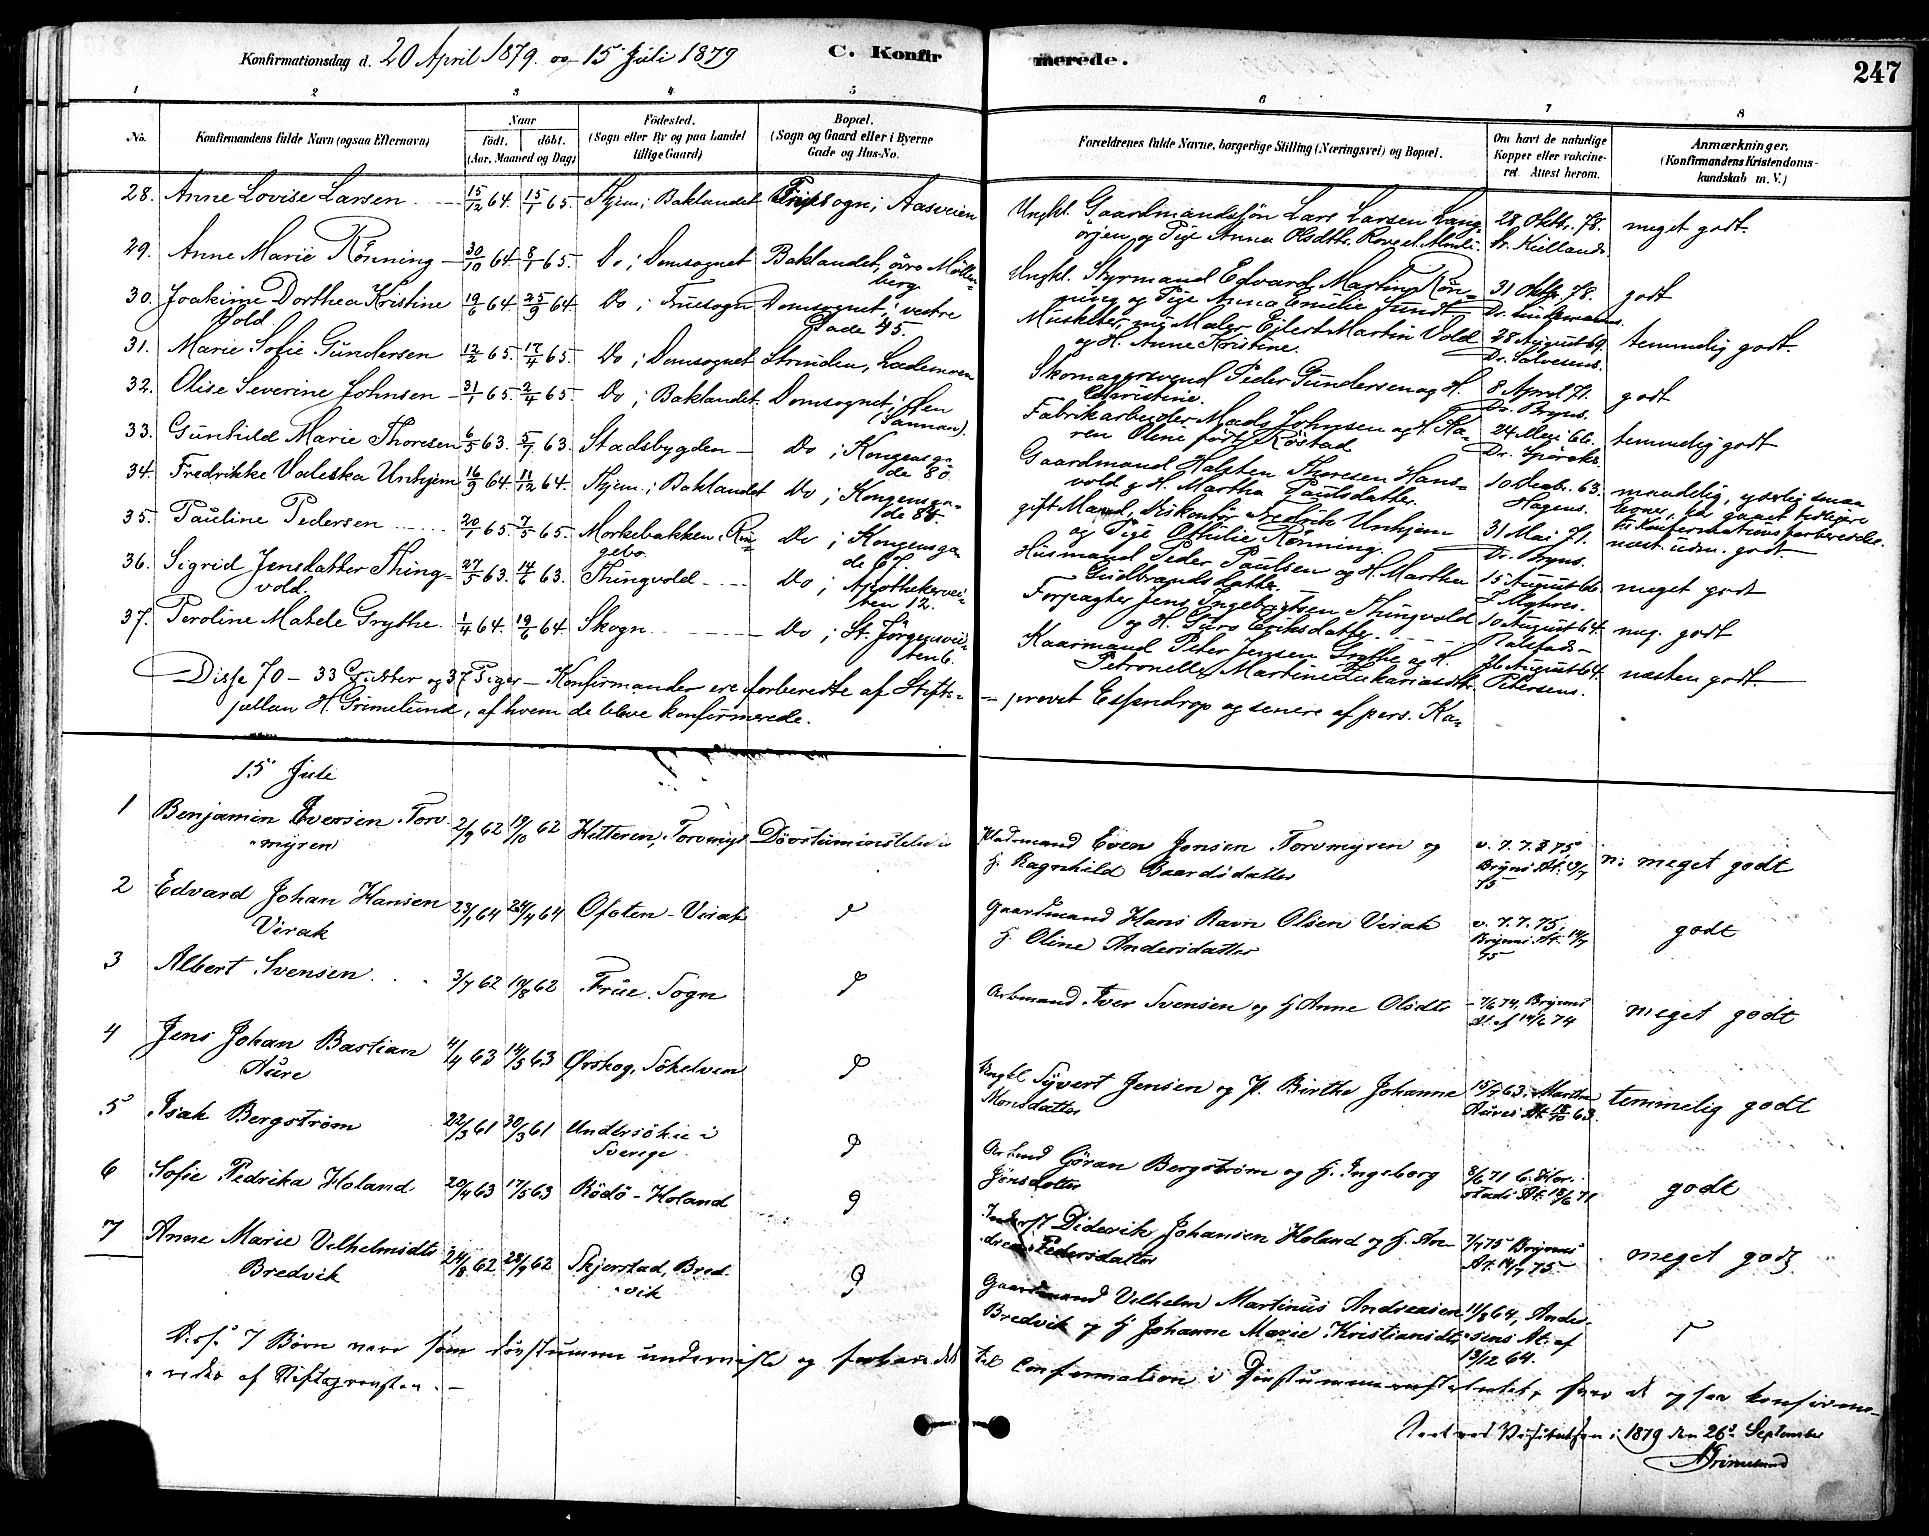 Konfirmationsdag d. 20 April 1879. og 15 Juli 1879
C. Konfir
merede.
247
1 2 3 4 5 6 7 8
No.
Konfirmandens fulde Navn (ogsaa Efternavn)
Naar
födt. döbt.
(Aar, Maaned og Dag)
Födested.
(Sogn eller By og paa Landet
tillige Gaard)
Bopæl.
(Sogn og Gaard eller i Byerne
Gade og Hus-No.
Forældrenes fulde Navne, borgerlige Stilling (Næringsvei) og Bopæl.
Om havt de naturlige
Kopper eller vakcine-
ret. Attest herom.
Anmærkninger.
(Konfirmandens Kristendoms-
kundskab m. V.)
28. Anne Lovise Larsen 15/12 64. 15/1 65. Thjem; Baklandet Aasveien
Ungkl. Gaardmandssön Lars Larsen Lang-
örjen og Pige Anna Olsdtr.
28 Oktbr. 78.
Dr. Kiellands
meget godt.
29. Anne Marie Rönning 30/10 64 8/1 65. Do; Domsognet Baklandet, övre Möllen-
berg
Ungkl. Styrmand Edvard Martin Rön-
ning og Pige Anna Emilie Lundt
31 Oktbr. 78.
godt
30. Joakime Dorthea Kristine
Vold. 19/6 64. 25/9 64. Do; Fruesogn Domsognet, vestre
Gade 45.
Musketer, nu Maler Ejlert Martin Vold
og H. Anne Kristine.
28 August 69
Dr. Sölvesens.
temmelig godt.
31. Marie Sofie Gundersen 12/2 65. 17/4 65. Do; Domsognet Strinden, Lademoen
Skomagersvend Peder Gundersen og H.
Christine.
8 April 71.
Dr. Bryns.
godt
32. Olise Severine Johnsen 31/1 65. 2/4 65. Do; Baklandet. Domsognet; Ilen
Fabrikarbeider Mads Johnsen og H. Ka-
ren Oline föd Röstad
24 Mai 66.
temmelig godt
33. Gunhild Marie Thoresen 6/5 63. 5/7 63. Stadsbygden Do; Kongensga-
de 80.
Gaardmand Halsten Thoresen Hans-
vold og H. Martha Paulsdatter.
10 Decb. 63.
Hagens.
34. Fredrikke Valeska Unhjem 16/9 64. 11/12 64. Thjem; Baklandet Do; Kongensga-
de 85.
gift Mand, Diskontör Fredrik Unhjem
og Pige Othilie Rönning.
31 Mai 71.
Dr. Bryns.
næst. udm. godt
35. Pauline Pedersen 20/1 65. 7/5 65. Morkebakken, Rin-
gebo. Do; Kongensga-
de 67.
Husmand Peder Paulsen og H. Martha
Gudbrandsdatter.
15 August 66
meget godt
36. Sigrid Jensdatter Thing-
vold. 27/5 63. 14/6 63. Thingvold Do; Apothekervei-
ten 12.
Forpagter Jens Ingebrigtsen Thingvold
og H. Guro Eriksdatter.
10 August 64.
meg. godt
37. Peroline Matele Grythe. 1/4 64. 19/6 64. Skogn Do; St. Jörgensvei-
ten 6.
Kaarmand Peter Jensen Grythe og H.
Petronelle Martine Zakariasdtr.
26 August 64.
Petersens.
næsten godt.
Disse 70 – 33 Gutter og 37 Piger – Konfirmander ere forberedte af Stifts-
provst Essendrop og senere af pers. Ka-
pellan H. Grimelund, af hvem de bleve konfirmerede.
15 Juli
1 Benjamin Iversen Torv-
myren 2/9 62 19/10 62 Hitteren, Torvmyr Dövstumminstitutet
Pladsmand Even Jonsen Torvmyren og
H. Ragnhild Baardsdatter
v. 7.7.75
Bryns At.
75
n: meget godt
2 Edvard Johan Hansen
Virak 23/1 64 24/4 64 Ofoten - Virak
Gaardmand Hans Ravn Olsen Virak
H. Oline Andersdatter
v. 7.7.75,
Bryns At. 14/7
75
godt
3 Albert Svensen 3/7 62 19/8 62 Frue Sogn
Arbmand Iver Svensen og H Anne Olsdtr
7/6 74, Bryns
At. af 14/6 74
meget godt
4 Jens Johan Bastian
Aure 4/4 63 14/5 63 Örskog, Sökelven
Ungkl Syvert Jensen og P. Birthe Johanne
Monsdatter
15/7 63. Martin
Aures At. 18/10 63.
temmelig godt
5 Isak Bergström 22/3 61 30/3 61 Undersöker i
Sverige
Arbmd Göran Bergström og H. Ingeborg
Jönsdatter
8/6 71
godt
6 Sofie Fedrika Holand 20/4 63 17/5 63 Rödö - Holand
Inderst Diderik Johansen Holand og H. An-
drea Pedersdatter
7/7 75 Bryns
At. 14/7 75
meget godt
7 Anne Marie Vilhelmsdtr
Bredvik 24/8 62 28/9 62 Skjerstad, Bred-
vik
Gaardmand Vilhelm Martinus Andreasen
Bredvik og H Johanne Marie Kristiansdtr
11/8 64, Ander-
sens At. af
13/12 64.
Disse 7 Börn vare som dövstumme underviste og forberedet
til Confirmation i Dövstummeinstitutet, og saa konfirme-
redes af Stiftsprovsten. –
1879 den 26de September
Grimelund